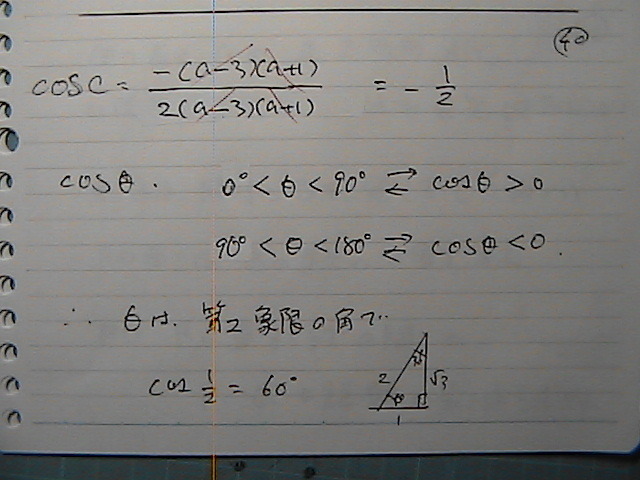 40
cosC = -(a-3)(a+1) / 2(a-3)(a+1) = - 1/2
cosθ. 0° < θ < 90° ⇄ cosθ > 0
90° < θ < 180° ⇄ cosθ < 0.
∴ θは、第2象限の角で
cos 1/2 = 60°
2 √3
1